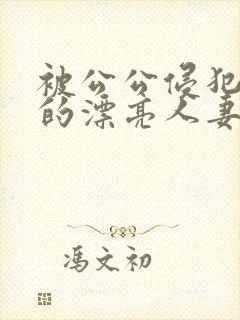 被公公侵犯
的漂亮人妻
冯文初